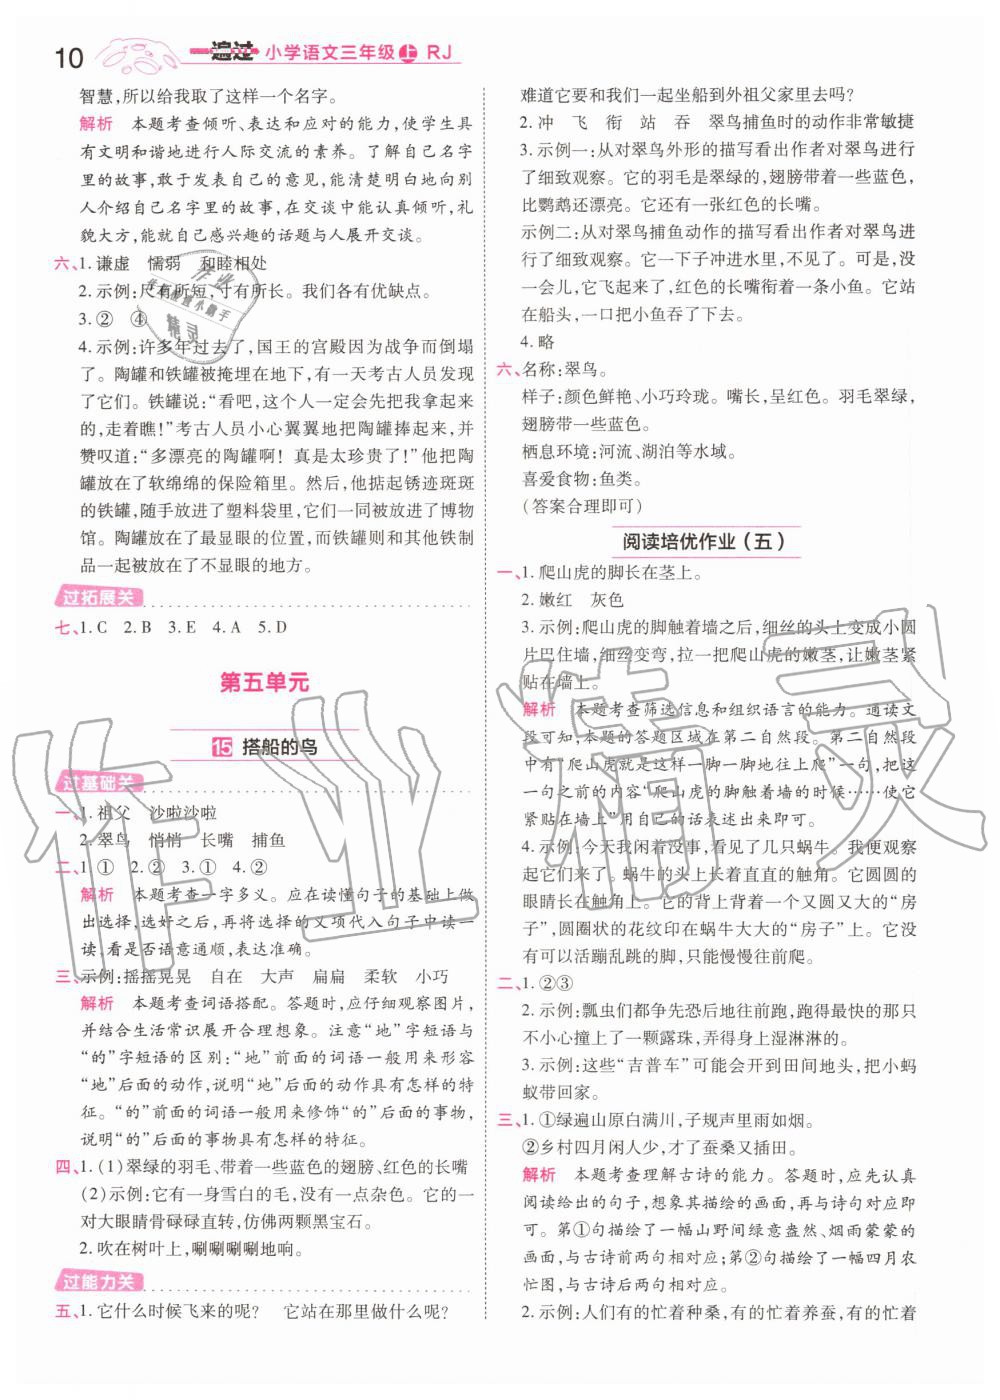 10
一遍过 小学语文三年级 上 RJ
智慧,所以给我取了这样一个名字。
解析 本题考查倾听、表达和应对的能力,使学生具
有文明和谐地进行人际交流的素养。了解自己名字
里的故事,敢于发表自己的意见,能清楚明白地向别
人介绍自己名字里的故事,在交谈中能认真倾听,礼
貌大方,能就自己感兴趣的话题与人展开交谈。
六、1. 谦虚 懦弱 和睦相处
2. 示例:尺有所短,寸有所长。我们各有优缺点。
3. ② ④
4. 示例:许多年过去了,国王的宫殿因为战争而倒塌
了。陶罐和铁罐被掩埋在地下,有一天考古人员发现
了它们。铁罐说:“看吧,这个人一定会先把我拿起来
的,走着瞧!”考古人员小心翼翼地把陶罐捧起来,并
赞叹道:“多漂亮的陶罐啊! 真是太珍贵了!”他把陶
罐放在了软绵绵的保险箱里。然后,他拣起锈迹斑斑
的铁罐,随手放进了塑料袋里,它们一同被放进了博物
馆。陶罐放在了最显眼的位置,而铁罐则和其他铁制
品一起被放在了不显眼的地方。
过拓展关
七、1. C 2. B 3. E 4. A 5. D
第五单元
15 搭船的鸟
过基础关
一、1. 祖父 沙啦沙啦
2. 翠鸟 悄悄 长嘴 捕鱼
二、1 ① 2. ② 3. ① 4. ②
解析 本题考查一字多义。应在读懂句子的基础上做
出选择,选好之后,再将选择的义项代入句子中读一
读,看是否语意通顺,表达准确。
三、示例:摇摇晃晃 自在 大声 扁扁 柔软 小巧
解析 本题考查词语搭配。答题时,应仔细观察图片,
并结合生活常识展开合理想象。注意“地”字短语与
“的”字短语的区别:“地”前面的词语一般用来形容
“地”后面的动作,说明“地”后面的动作具有怎样的特
征。“的”前面的词语一般用来修饰“的”后面的事物,
说明“的”后面的事物具有怎样的特征。
四、1. (1)翠绿的羽毛、带着一些蓝色的翅膀、红色的长嘴
(2)示例:它有一身雪白的毛,没有一点杂色。它的一
对大眼睛骨碌碌直转,仿佛两颗黑宝石。
2. 吹在树叶上,唰唰唰唰地响。
过能力关
五、1. 它什么时候飞来的呢? 它站在那里做什么呢?
难道它要和我们一起坐船到外祖父家里去吗?
2. 冲 飞 衔 站 吞 翠鸟捕鱼时的动作非常敏捷
3. 示例一:从对翠鸟外形的描写看出作者对翠鸟进行
了细致观察。它的羽毛是翠绿的,翅膀带着一些蓝色,
比鹦鹉还漂亮。它还有一张红色的长嘴。
示例二:从对翠鸟捕鱼动作的描写看出作者对翠鸟进
行了细致观察。它一下子冲进水里,不见了。可是,没
一会儿,它飞起来了,红色的长嘴衔着一条小鱼。它站
在船头,一口把小鱼吞了下去。
4. 略
六、名称:翠鸟。
样子:颜色鲜艳、小巧玲珑。嘴长,呈红色。羽毛翠绿,
翅膀带一些蓝色。
栖息环境:河流、湖泊等水域。
喜爱食物:鱼类。
(答案合理即可)
阅读培优作业(五)
一、1. 爬山虎的脚长在茎上。
2. 嫩红 灰色
3. 示例:爬山虎的脚触着墙之后,细丝的头上变成小圆
片巴住墙,细丝变弯,拉一把爬山虎的嫩茎,让嫩茎紧
贴在墙上。
解析 本题考查筛选信息和组织语言的能力。通读文
段可知,本题的答题区域在第二自然段。第二自然段
在“爬山虎就是这样一脚一脚地往上爬”一句,把这
一句之前的内容“爬山虎的脚触着墙的时候……使它
紧贴在墙上”用自己的话表述出来即可。
4. 示例:今天我闲着没事,看见了几只蜗牛。我便观察
起它们来了。蜗牛的头上长着直直的触角。它圆圆的
眼睛长在触角上。它的背上背着一个又圆又大的“房
子”,圆圈状的花纹印在蜗牛大大的“房子”上。它没
有可以活蹦乱跳的脚,只能慢慢往前爬。
二、1. ②③
2. 示例:瓢虫们都争先恐后地往前跑,跑得最快的那只
不小心撞上了一颗露珠,弄得身上湿淋淋的。
3. 示例:这些“吉普车”可能会开到田间地头,把小蚂
蚁带回家。
三、1. ①绿遍山原白满川,子规声里雨如烟。
②乡村四月闲人少,才了蚕桑又插田。
解析 本题考查理解古诗的能力。答题时,应先认真
阅读给出的句子,想象其描绘的画面,再与诗句对应即
可。第①句描绘了一幅山野间绿意盎然、烟雨蒙蒙的
画面,与古诗前两句相对应;第②句描绘了一幅四月农
忙图,与古诗后两句相对应。
2. 示例:人们有的忙着种桑,有的忙着养蚕,有的忙着
作业精灵